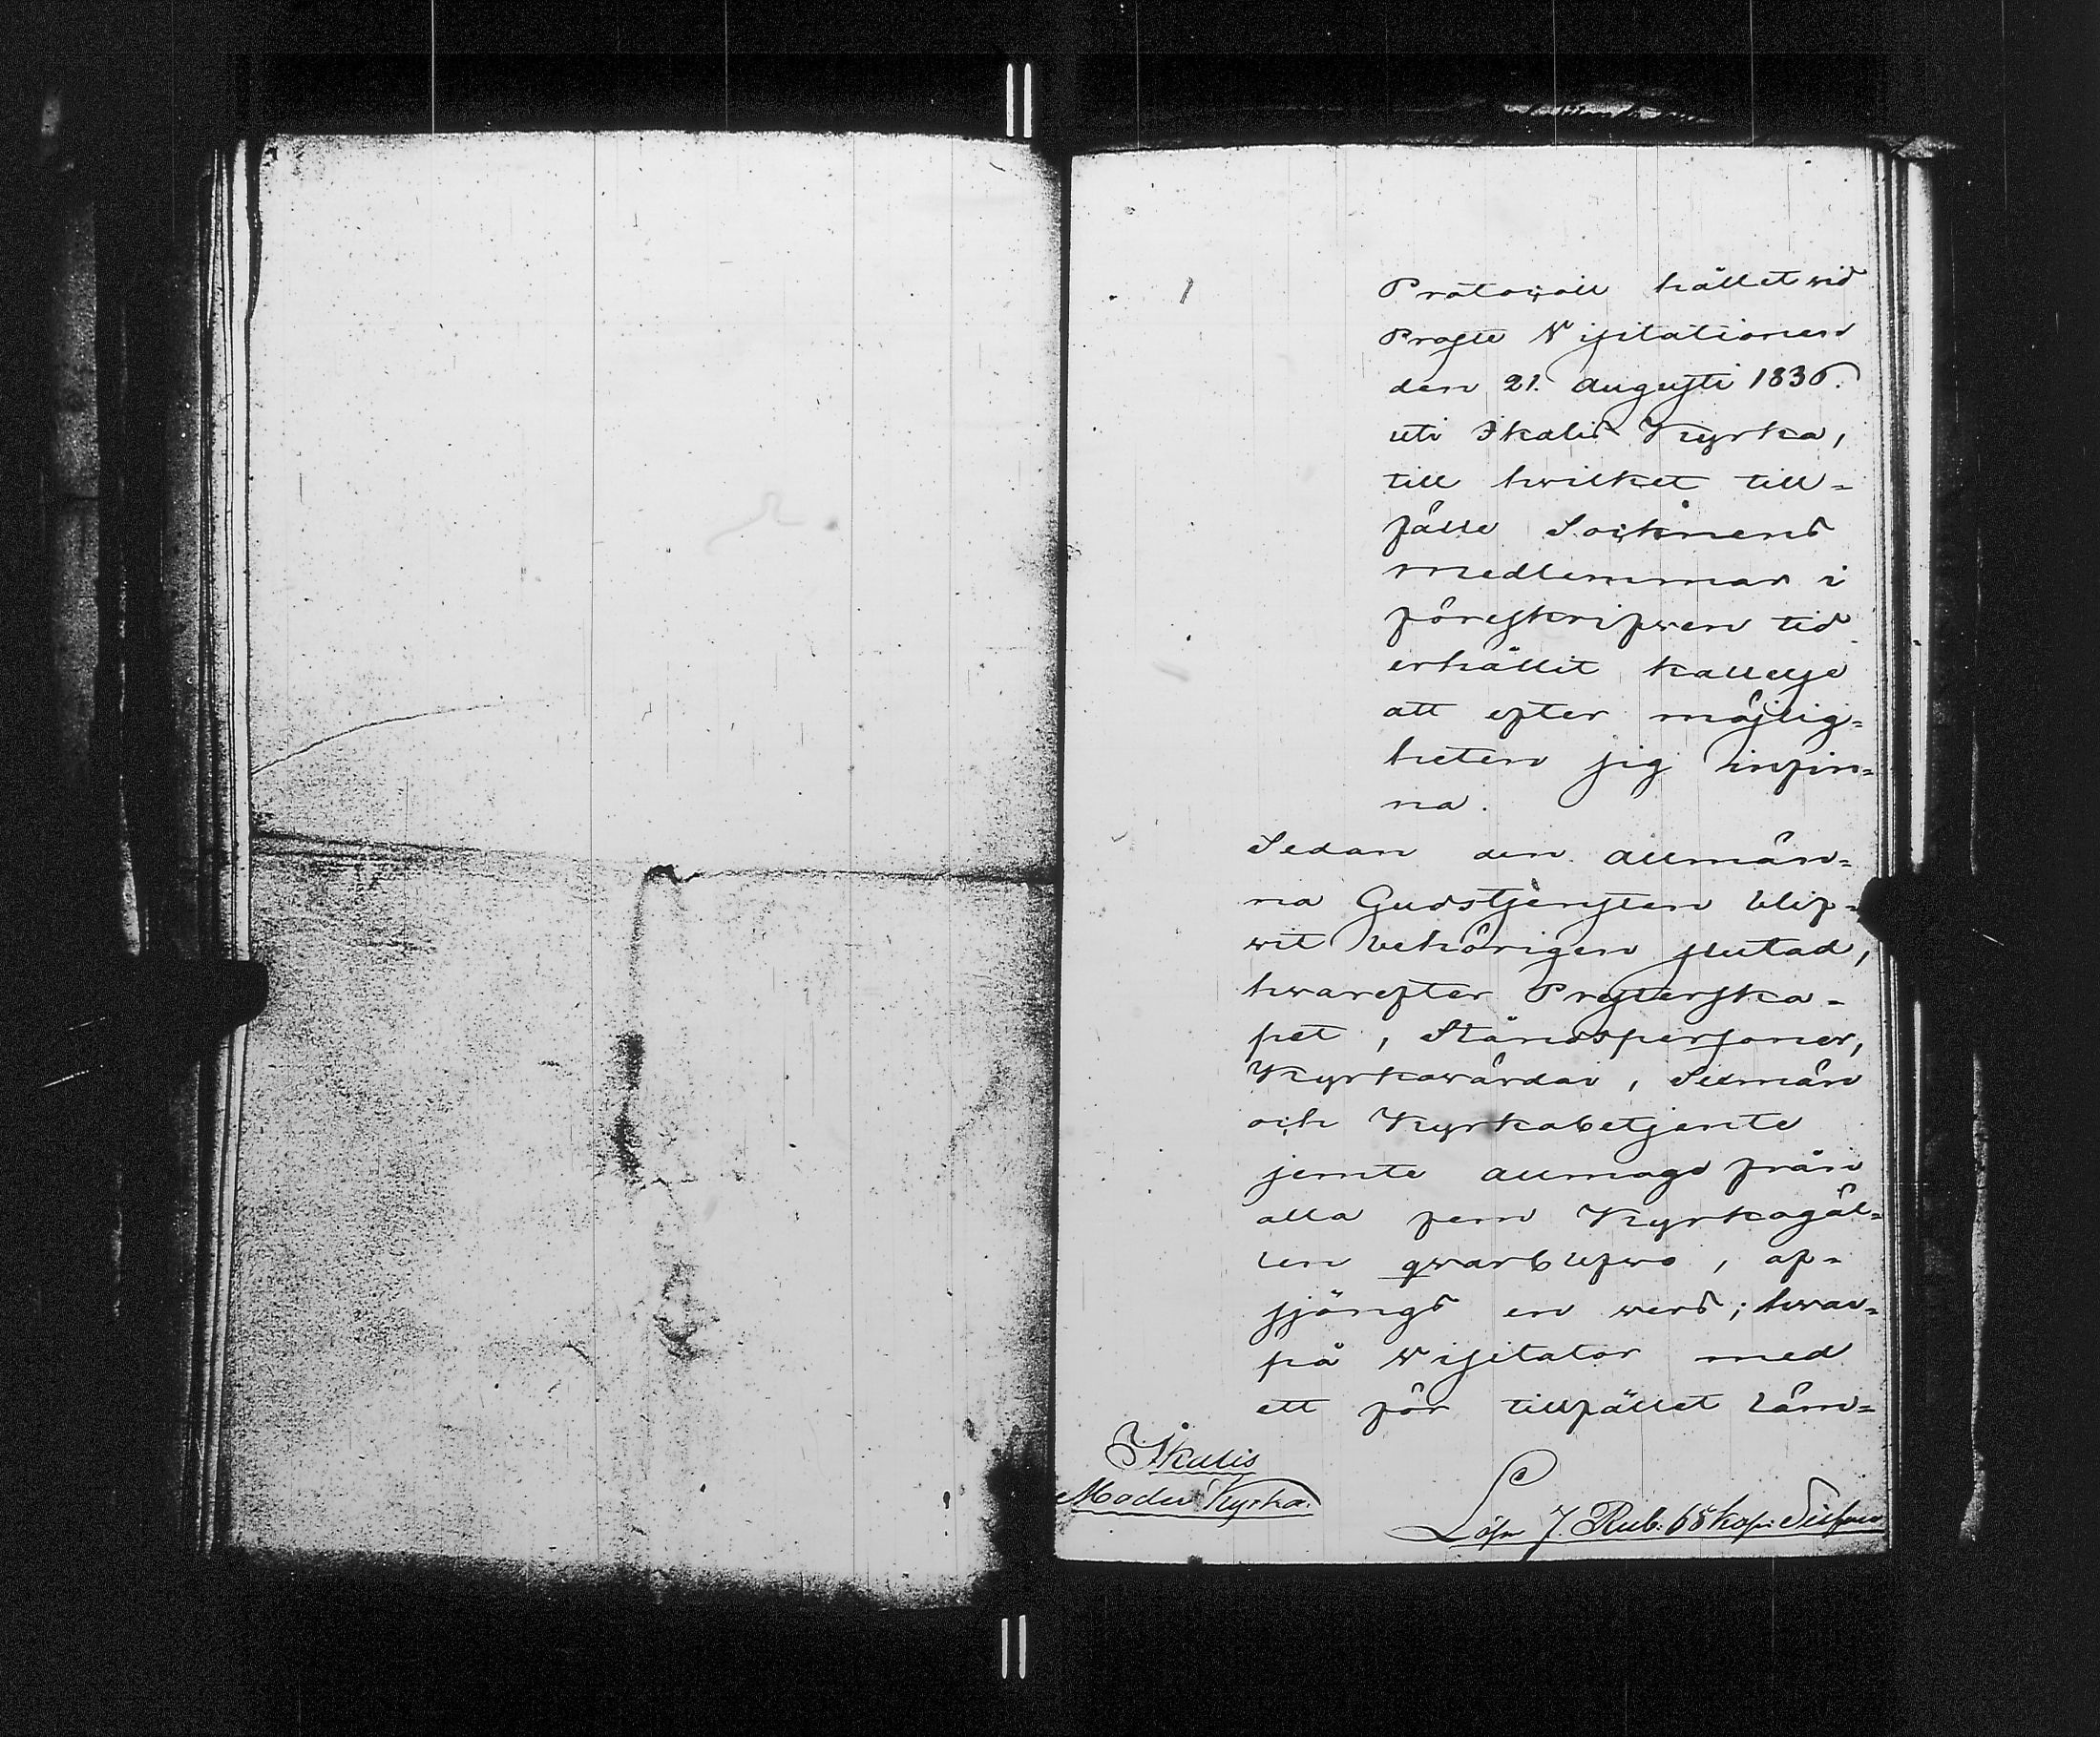 Protocoll hållet wid
Proste Visitationen
den 21. Augusti 1836.
uti Ikalis Kyrka,
till hwilket till=
fälle Socknens
medlemmar i
föreskrifwen tid
erhållit kallelse
att efter möjlig=
heten sig infin=
na.
Sedan den allmän=
na Gudstjensten blif=
wit behörigen slutad,
hwarefter Presterska-
pet, Ståndspersoner,
Kyrkowärdar, Sexmän
och Kyrkobetjente
jemte allmoge från
alla fem Kyrkogäl=
len qwarblefwo, af=
sjöngs en wers; hwar=
på Visitator med
ett för tillfället läm=
Ikalis
Moder Kyrka.
Lösn 7. Rub: 68 Kop: Silfwer